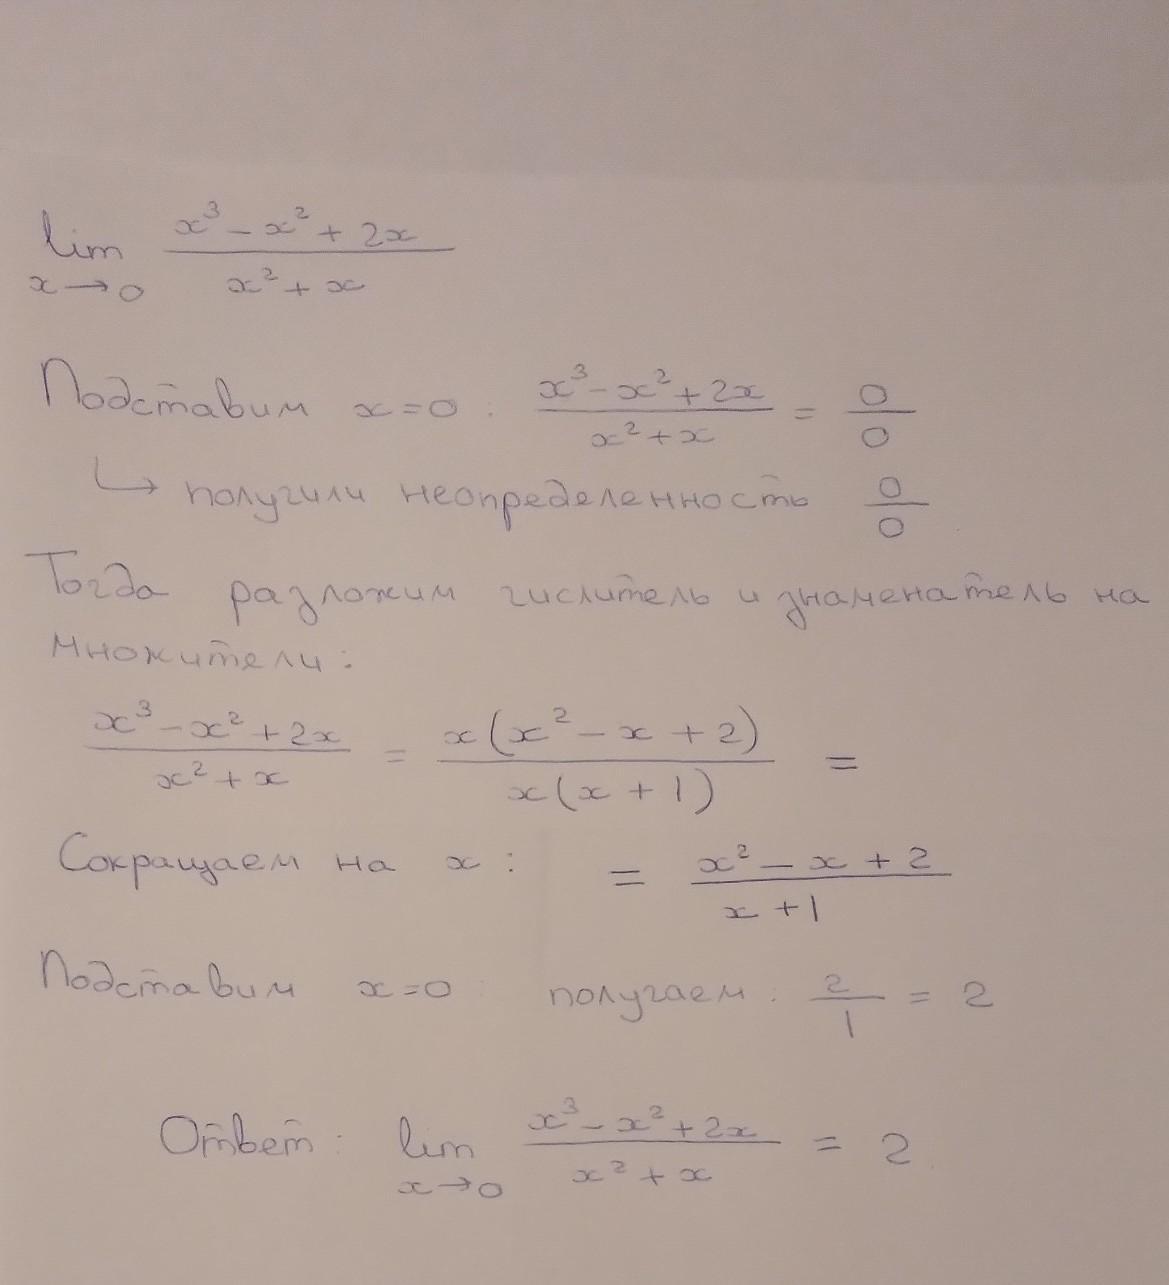 lim x→0 (x³ − x² + 2x)/(x² + x)
Подставим x=0 : (x³ − x² + 2x)/(x² + x) = 0/0
↳ получили неопределенность 0/0
Тогда разложим числитель и знаменатель на
множители:
(x³ − x² + 2x)/(x² + x) = x(x² − x + 2)/x(x + 1) =
Сокращаем на x : = (x² − x + 2)/(x + 1)
Подставим x=0 : получаем : 2/1 = 2
Ответ: lim x→0 (x³ − x² + 2x)/(x² + x) = 2